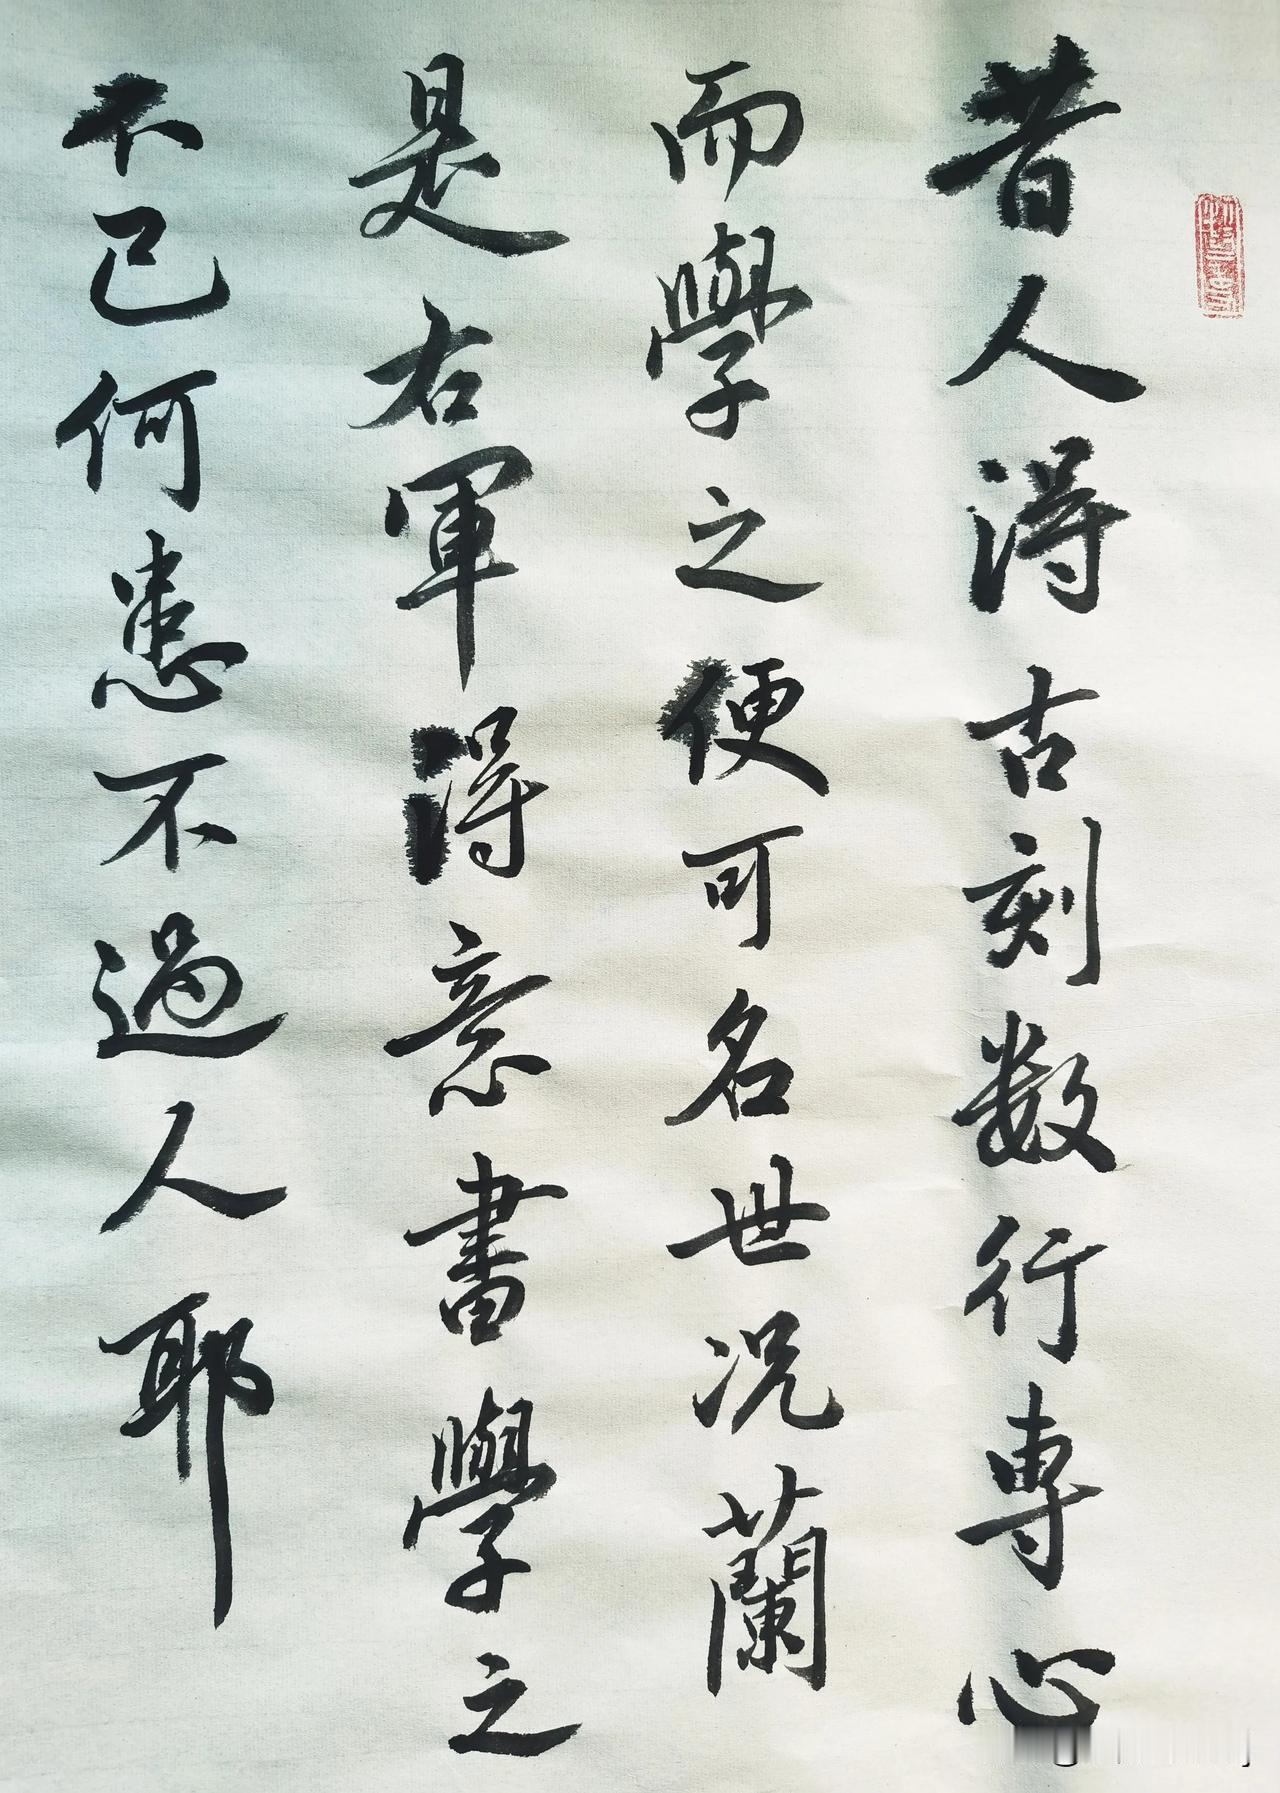 昔人得古刻数行專心
而學之便可名世況蘭
是右軍得意書學之
不已何患不過人耶